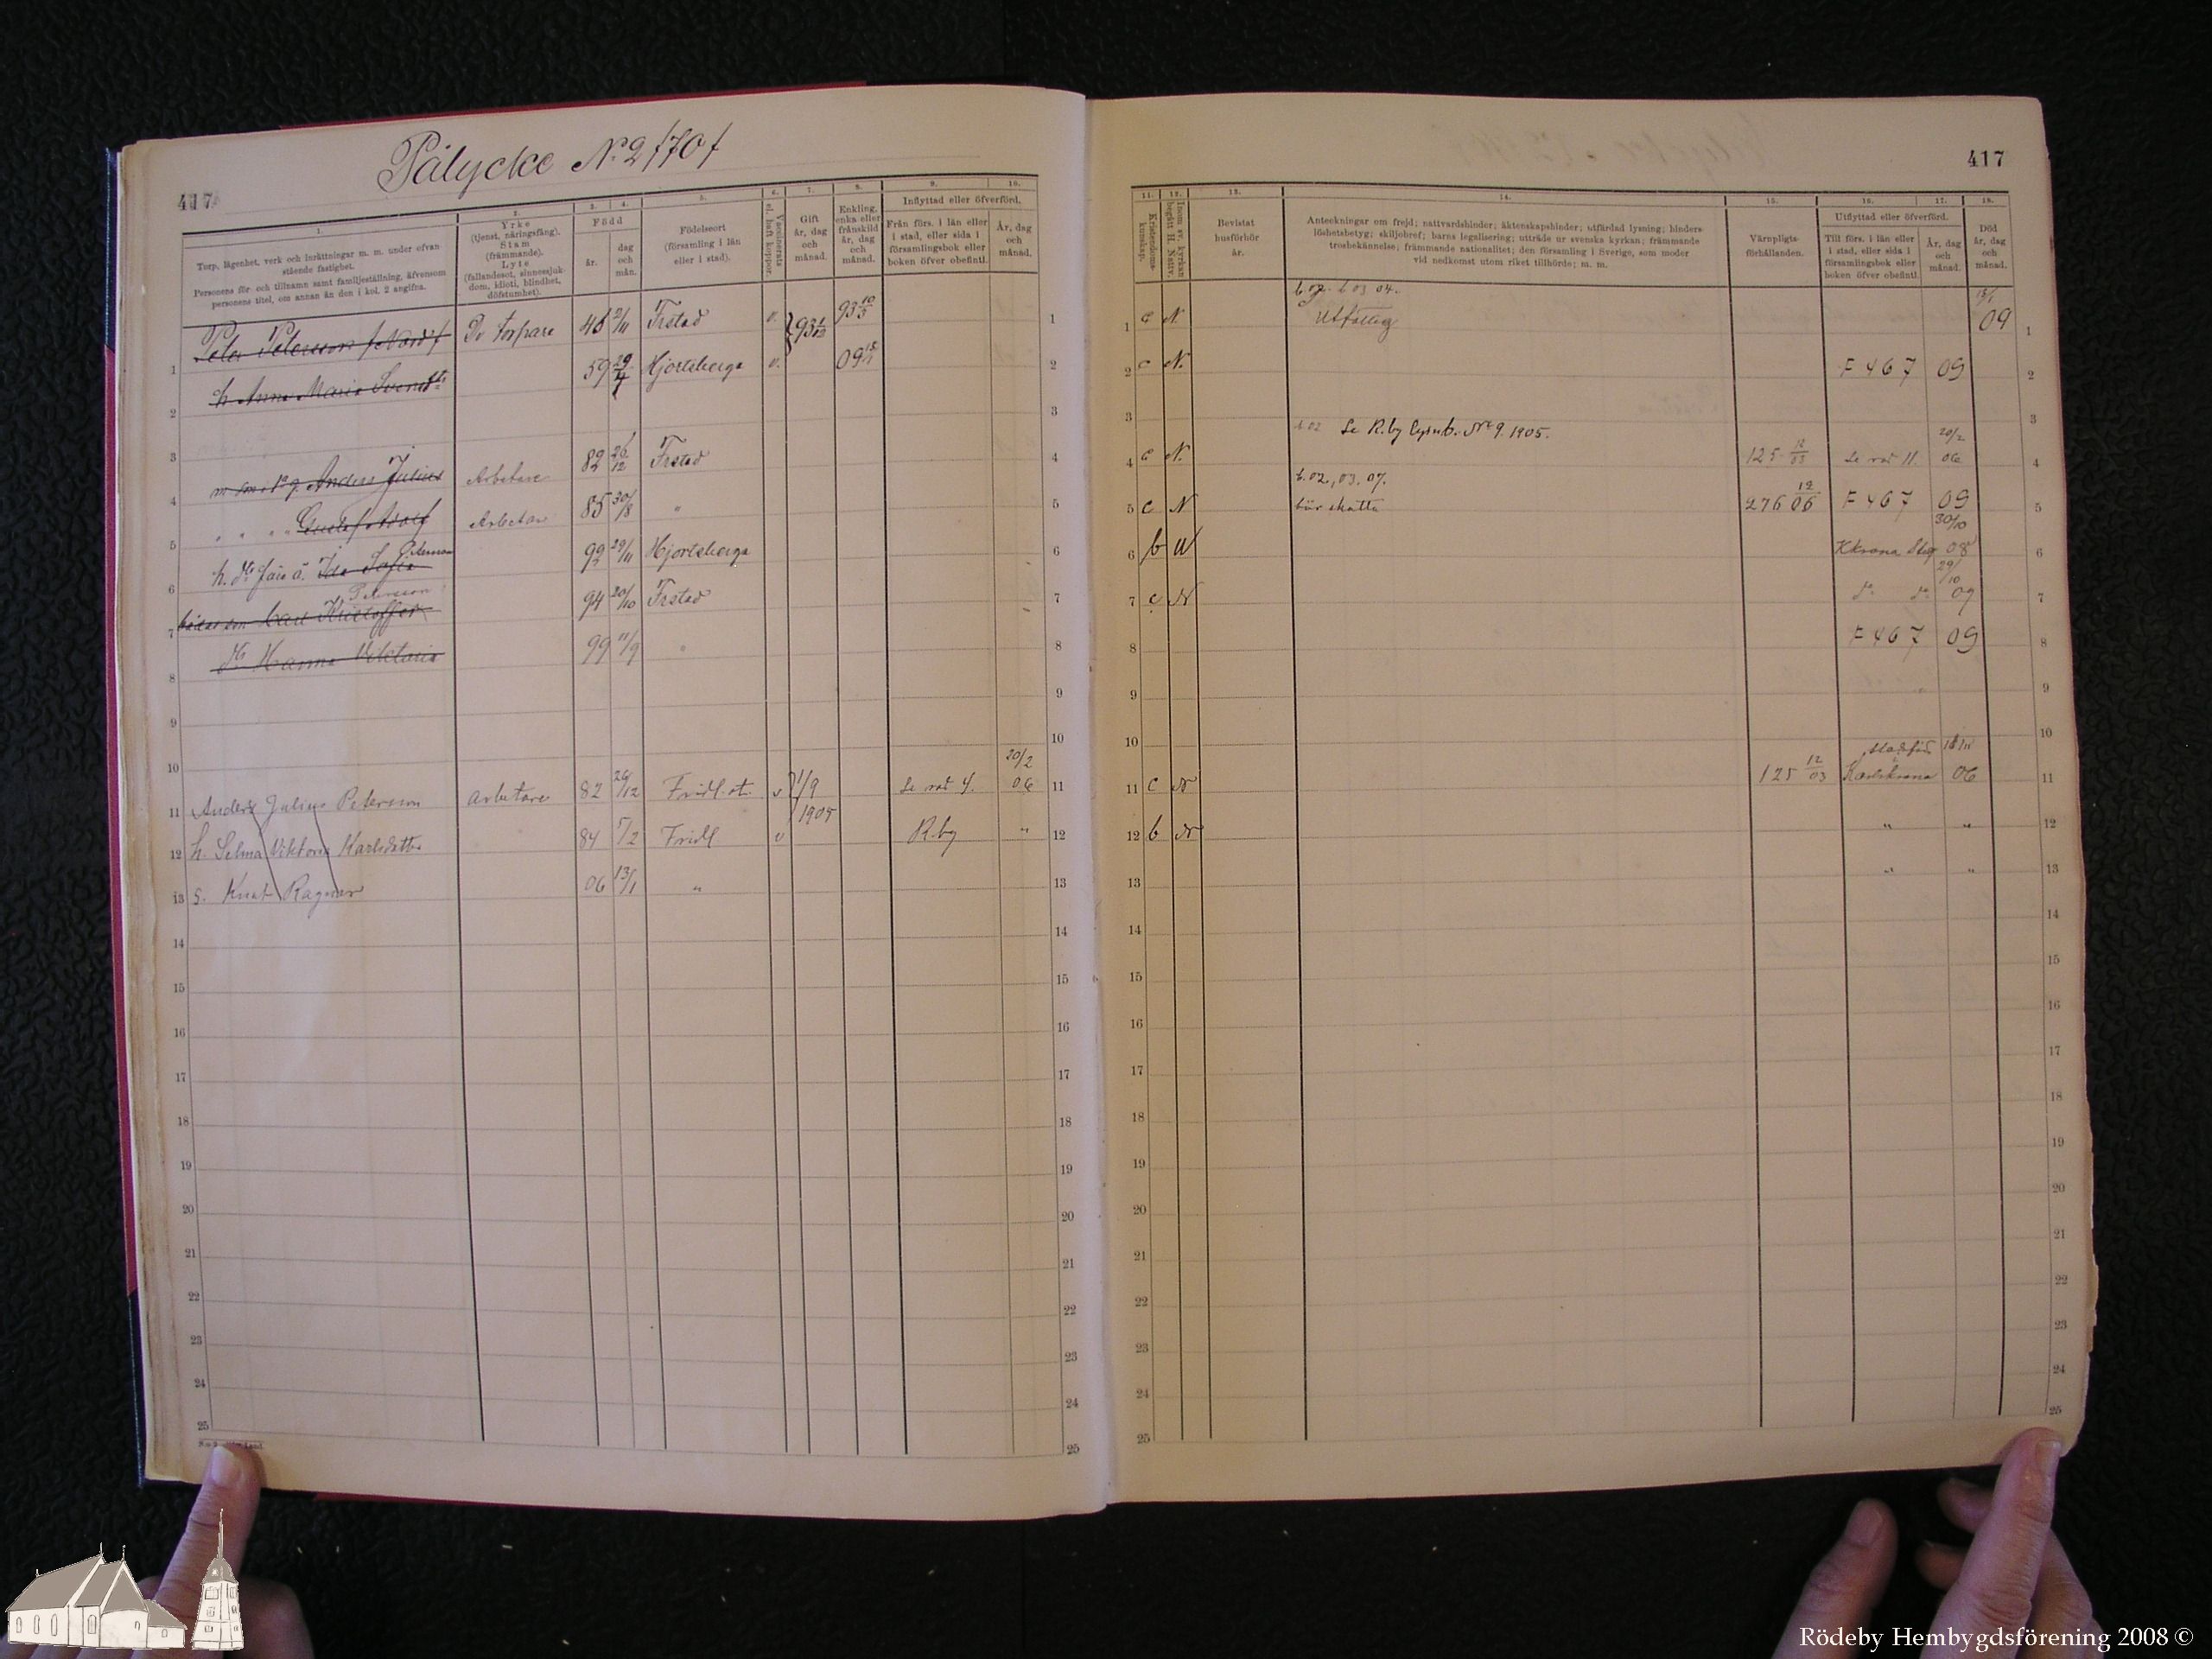 Pålycke N:2 /70/
417
1.
Torp, lägenhet, verk och inrättningar m. m. under ofvan
stående fastighet.
Personens för- och tillnamn samt familjeställning, äfvensom
personens titel, om annan än den i kol. 2 angifna.
2.
Yrke
(tjenst, näringsfång).
Stam
(främmande).
Lyte
(fallandesot, sinnessjuk-
dom, idioti, blindhet,
döfstumhet).
3. 4.
Född
år.
dag
och
mån.
5.
Födelseort
(församling i län
eller i stad).
6.
Vaccinerats
el. haft koppor.
7.
Gift
år, dag
och
månad.
8.
Enkling,
enka eller
frånskild
år, dag
och
månad.
9. 10.
Inflyttad eller öfverförd.
Från förs. i län eller
i stad, eller sida i
församlingsbok eller
boken öfver obefintl.
År, dag
och
månad.
1 Peter Petersson /Nord/ Do torpare 46 Frstad v. 93 93 10/5 1
2 h. Anna Maria Svensdtr 59 29/4 Hjortsberga v. 09 2
3 3
4 Anders Julius Arbetare 82 26/12 Frstad 4
5 " " " Gustaf Adolf Arbetare 85 30/8 " 5
6 Ida Sofia Peterson 92 29/11 Hjortsberga 6
7 son Carl Kristoffer Petersson 94 20/10 Frstad 7
8 dr Hanna Viktoria 99 11/9 " 8
9 9
10 10
11 Anders Julius Peterson Arbetare 82 26/12 Fridl.st. v 1/9 1905 Se rad 4. 20/2 06 11
12 h. Selma Viktoria Karlsdotter 84 7/2 Fridl v R.by " 12
13 s. Knut Ragnar 06 13/1 " 13
14 14
15 15
16 16
17 17
18 18
19 19
20 20
21 21
22 22
23 23
24 24
25 25
417
11.
Kristendoms-
kunskap.
12.
Inom sv. kyrkan
begått H. Nattv.
13.
Bevistat
husförhör
år.
14.
Anteckningar om frejd; nattvardshinder; äktenskapshinder; utfärdad lysning; hinders-
löshetsbetyg; skiljobref; barns legalisering; utträde ur svenska kyrkan; främmande
trosbekännelse; främmande nationalitet; den församling i Sverige, som moder
vid nedkomst utom riket tillhörde; m. m.
15.
Värnpligts-
förhållanden.
16. 17.
Utflyttad eller öfverförd.
Till förs. i län eller
i stad, eller sida i
församlingsbok eller
boken öfver obefintl.
År, dag
och
månad.
18.
Död
år, dag
och
månad.
03 04.
1 c N. Utfattig 09 1
2 c N. F 467 09 2
3 3
Se R.by lysnb. No 9. 1905. 20/2
4 c N. 125 12/03 Se rad 11. 06 4
b.02., 03. 07.
5 c N bör skatta 276 12/06 F 467 09 5
30/10
6 b U Kkrona Stsf 08 6
29/10
7 c N do do 09 7
8 F 467 09 8
9 9
10 10
stadsförs 18/11
11 c N 125 12/03 Karlskrona 06 11
12 b N " " 12
13 " " 13
14 14
15 15
16 16
17 17
18 18
19 19
20 20
21 21
22 22
23 23
24 24
25 25
Rödeby Hembygdsförening 2008 ©